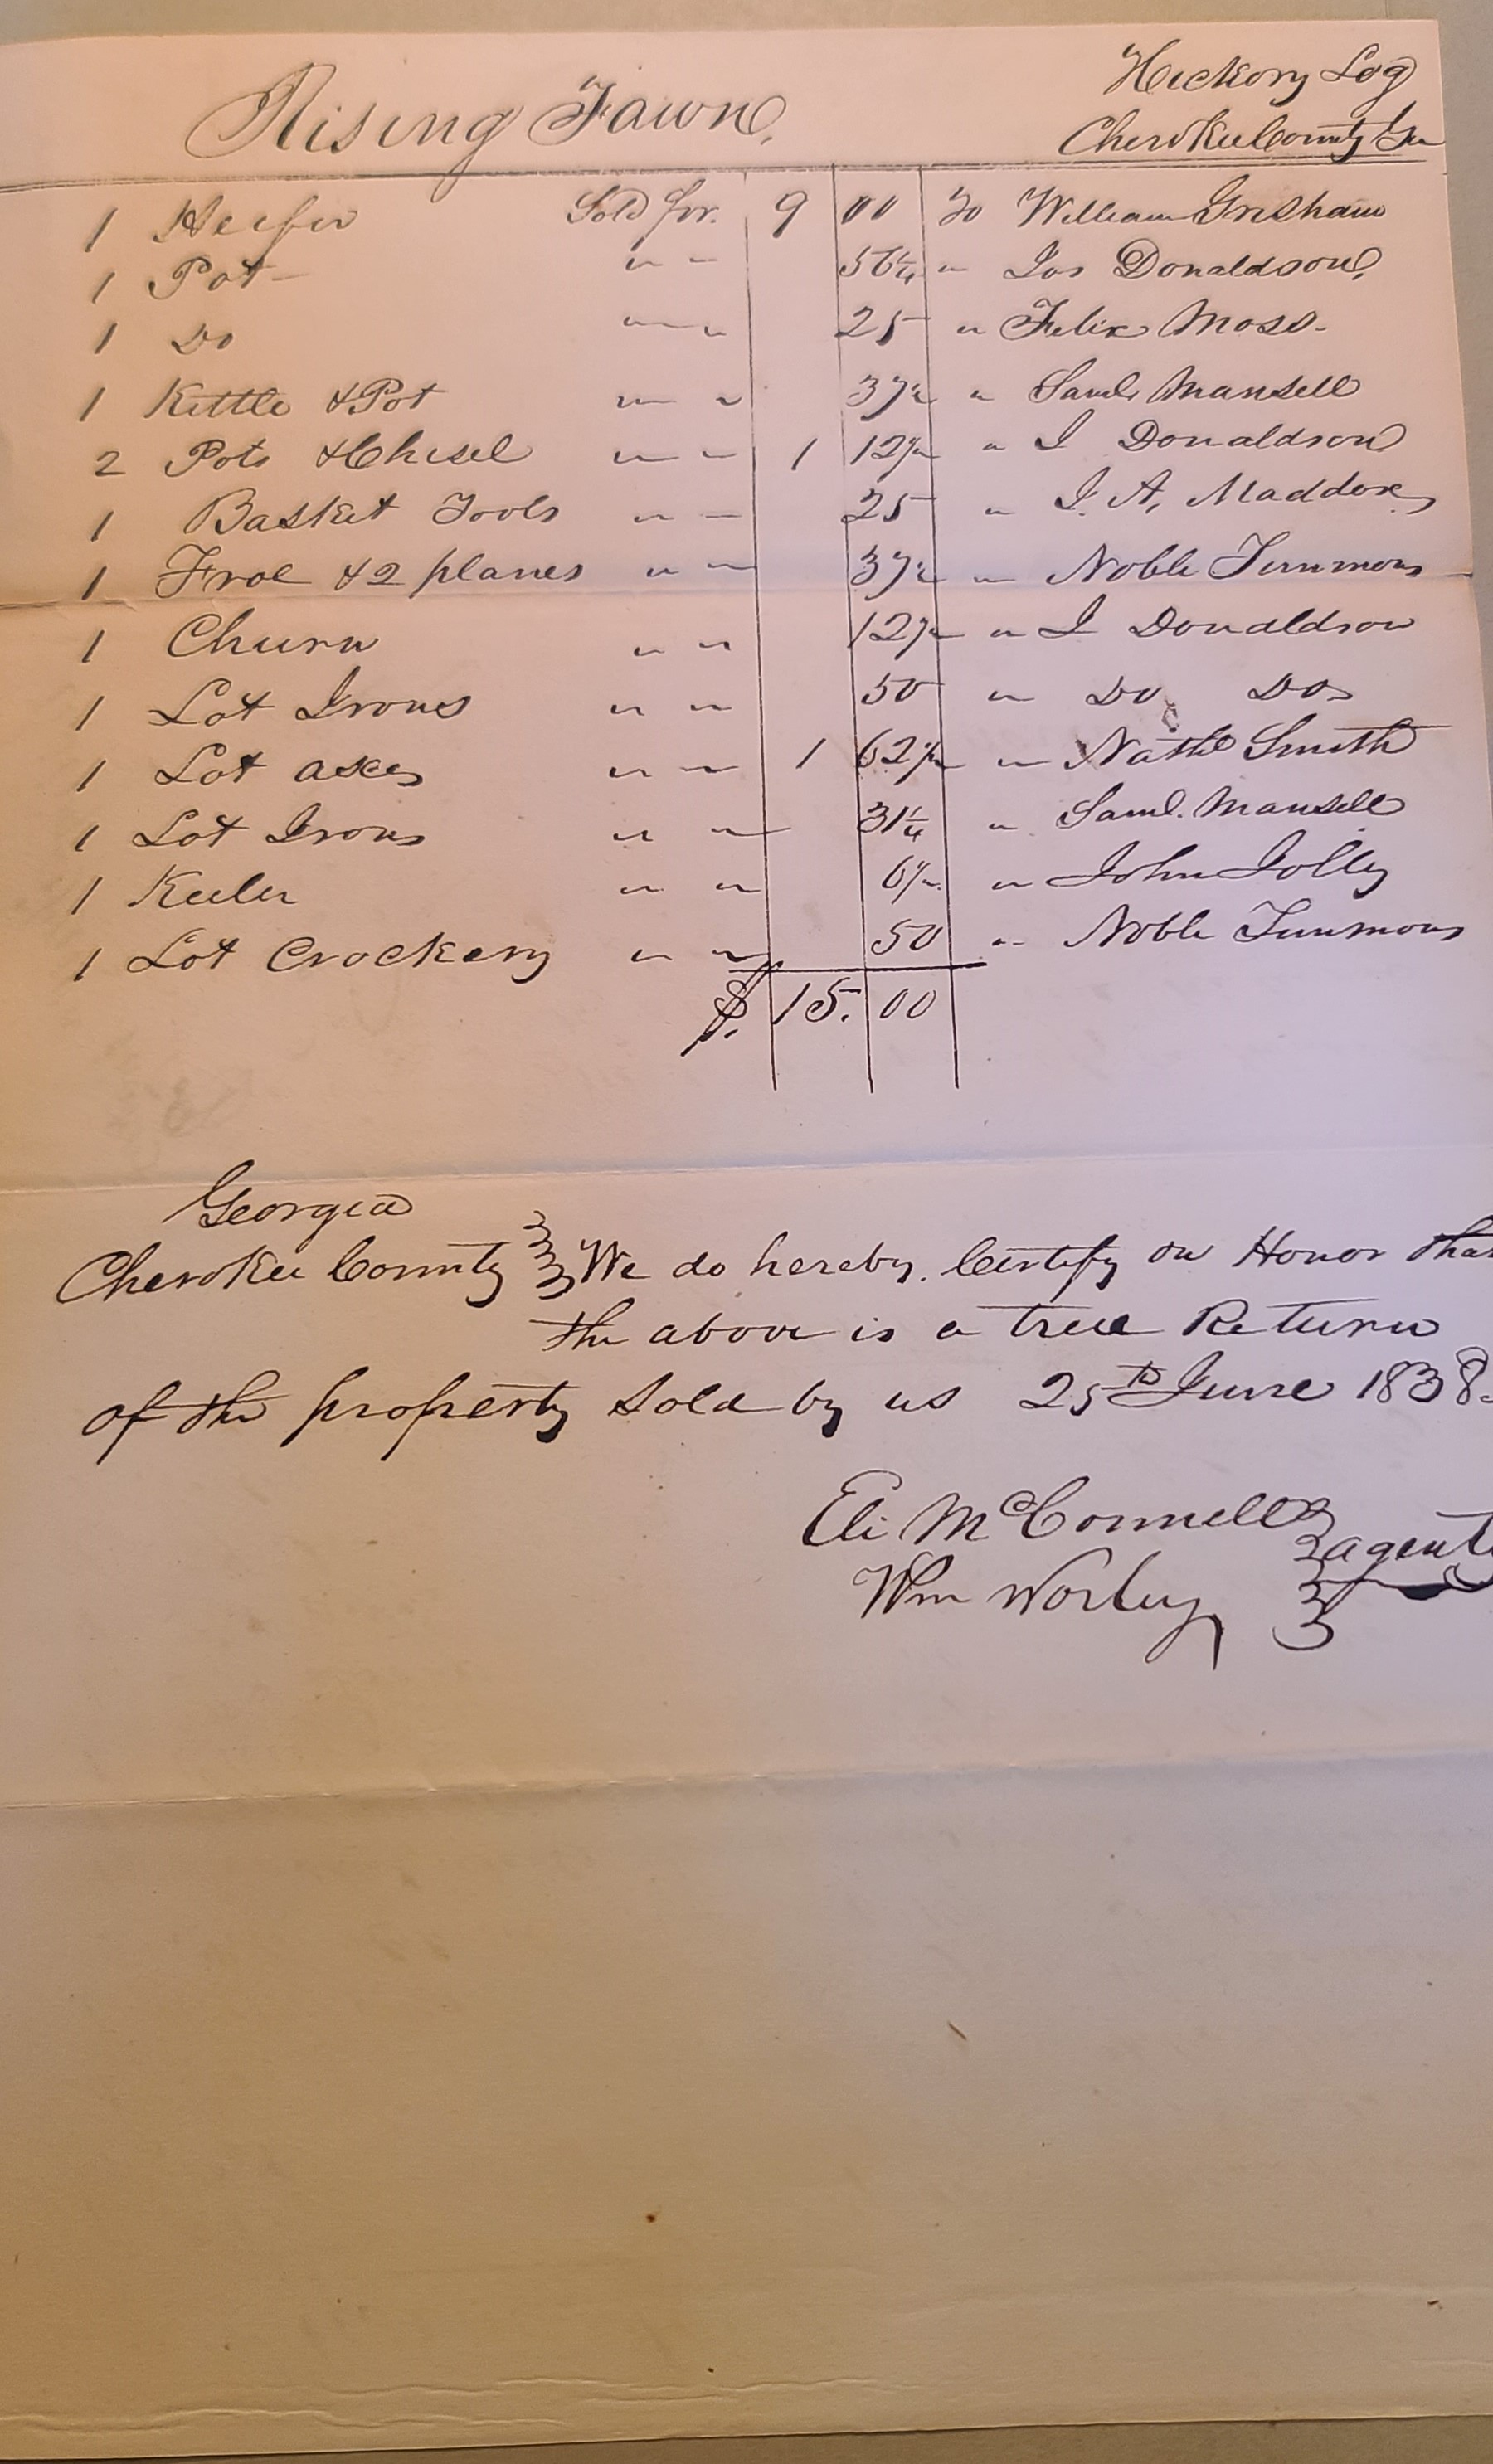 Rising Fawn.
Hickory Log
Cherokee County Ga
1 Heifer Sold for. 9 00 To William Grisham
1 Pot - " " 56¼ " Jos Donaldson,
1 Do " " 25 " Felix Moss.
1 Kettle & Pot " " 37½ " Saml. Mansell
2 Pots & Chisel " " 1 12½ " J Donaldson
1 Basket Tools " " 25 " J. A, Maddox
1 Froe & 2 planes " " 37½ " Noble Timmons
1 Churn " " 12½ " J Donaldson
1 Lot Irons " " 50 " Do Do
1 Lot axes " " 1 62½ " Nathl Smith
1 Lot Irons " " 31¼ " Saml. Mansell
1 Keeler " " 6¼ " John Jolley
1 Lot Crockery " " 50 " Noble Timmons
$. 15. 00
Georgia
Cherokee County We do hereby Certify on Honor that
the above is a true Return
of the property sold by us 25th June 1838.
Eli McConnell
agents
Wm Worley